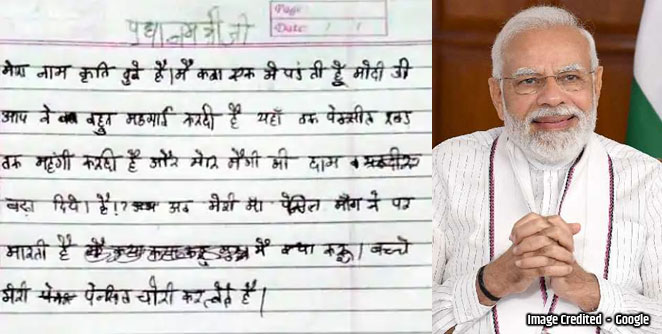 प्रधानमंत्री जी
Page:
Date: / /
मेरा नाम कृति दुबे है। मैं कक्षा एक में पढ़ती हूँ मोदी जी
आप ने बहुत मंहगाई करदी है यहाँ तक पेन्सील रबड़
तक महंगी करदी है और मेरे मैगी की दाम
बढ़ा दिये। है!? अब मेरी मां पेन्सिल माँगने पर
मारती है मैं क्या करू। बच्चे
मेरी पेन्सिल चोरी कर लेते है।
Image Credited - Google